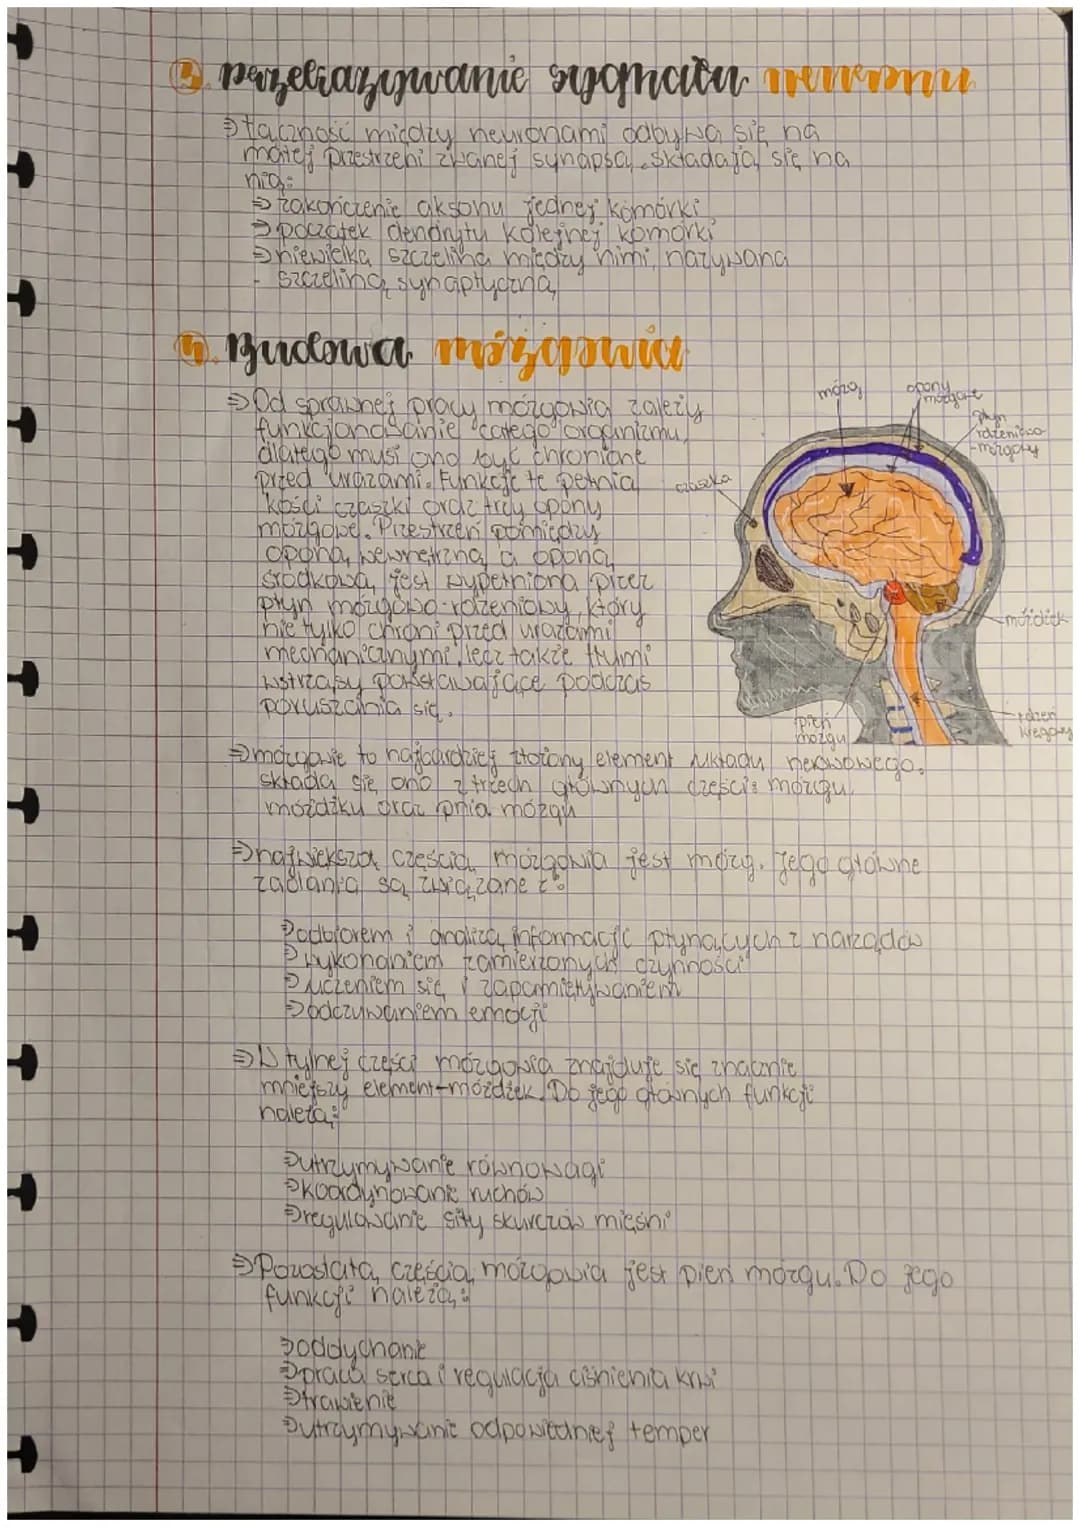 3. przekazywanie sygnału neuronu
⇒ łączność między neuronami odbywa się na
małej przestrzeni zwanej synapsą. składają się na
nią:
⇒ zakończenie aksonu jednej komórki
⇒ początek dendrytu kolejnej komórki
⇒ niewielka szczelina między nimi, nazywana
- szczeliną synaptyczną
4. Budowa mózgowia
⇒ Od sprawnej pracy mózgowia zależy
funkcjonowanie całego organizmu,
dlatego musi ono być chronione
przed urazami. Funkcje te pełnią
kości czaszki oraz trzy opony
mózgowe. Przestrzeń pomiędzy
oponą wewnętrzną a oponą
środkową jest wypełniona przez
płyn mózgowo-rdzeniowy, który
nie tylko chroni przed urazami
mechanicznymi, lecz także tłumi
wstrząsy powstawające podczas
poruszania się.
mózg
opony
mózgowe
płyn
rdzeniowo
-mózgowy
czaszka
móżdżek
pień
mózgu
rdzeń
kręgowy
⇒ mózgowie to najbardziej złożony element układu nerwowego.
składa się ono z trzech głównych części: mózgu,
móżdżku oraz pnia mózgu
⇒ największą częścią mózgowia jest mózg. Jego główne
zadania są związane z:
⇒ odbiorem i analizą informacji płynących z narządów
⇒ wykonaniem zamierzonych czynności
⇒ uczeniem się i zapamiętywaniem
⇒ odczuwaniem emocji
⇒ W tylnej części mózgowia znajduje się znacznie
mniejszy element-móżdżek. Do jego głównych funkcji
należą:
⇒ utrzymywanie równowagi
⇒ koordynowanie ruchów
⇒ regulowanie siły skurczów mięśni
⇒ Pozostałą częścią mózgowia jest pień mózgu. Do jego
funkcji należą:
⇒ oddychanie
⇒ praca serca i regulacja ciśnienia krwi
⇒ trawienie
⇒ utrzymywanie odpowiedniej temper